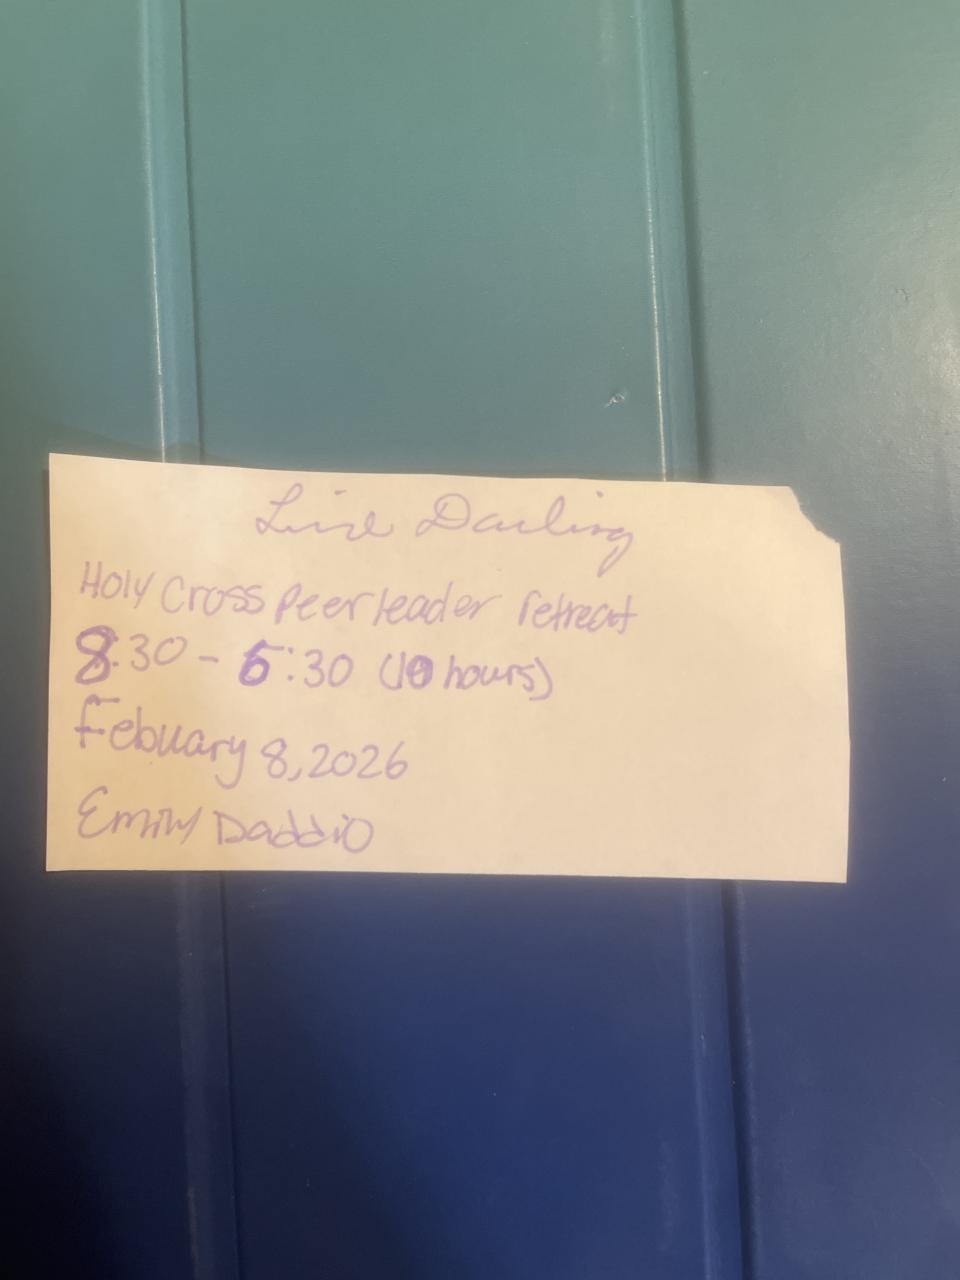 Line Darling
Holy Cross Peer leader retreat
8:30 - 6:30 (10 hours)
Febuary 8, 2026
Emily Daddio